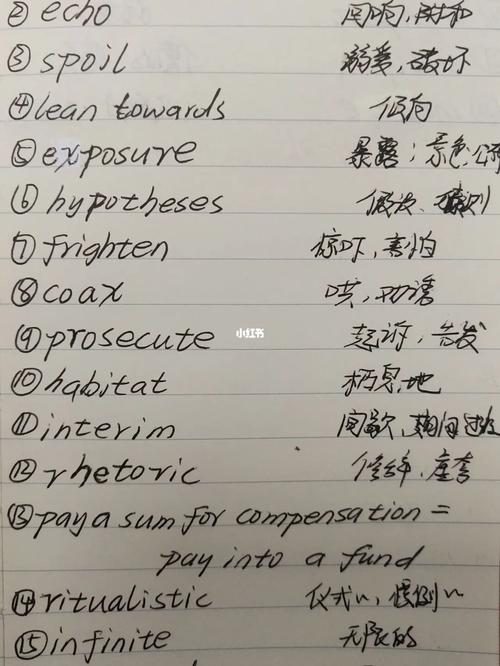 ② echo 回响，附和
③ spoil 溺爱，破坏
④ lean towards 倾向
⑤ exposure 暴露；景色
⑥ hypotheses 假设、猜测
⑦ frighten 惊吓，害怕
⑧ coax 哄，劝诱
⑨ prosecute 起诉，告发
小红书
⑩ habitat 栖息地
⑪ interim 间歇，期间过渡
⑫ rhetoric 修辞，座套
⑬ pay a sum for compensation =
pay into a fund
⑭ ritualistic 仪式~，惯例~
⑮ infinite 无限的